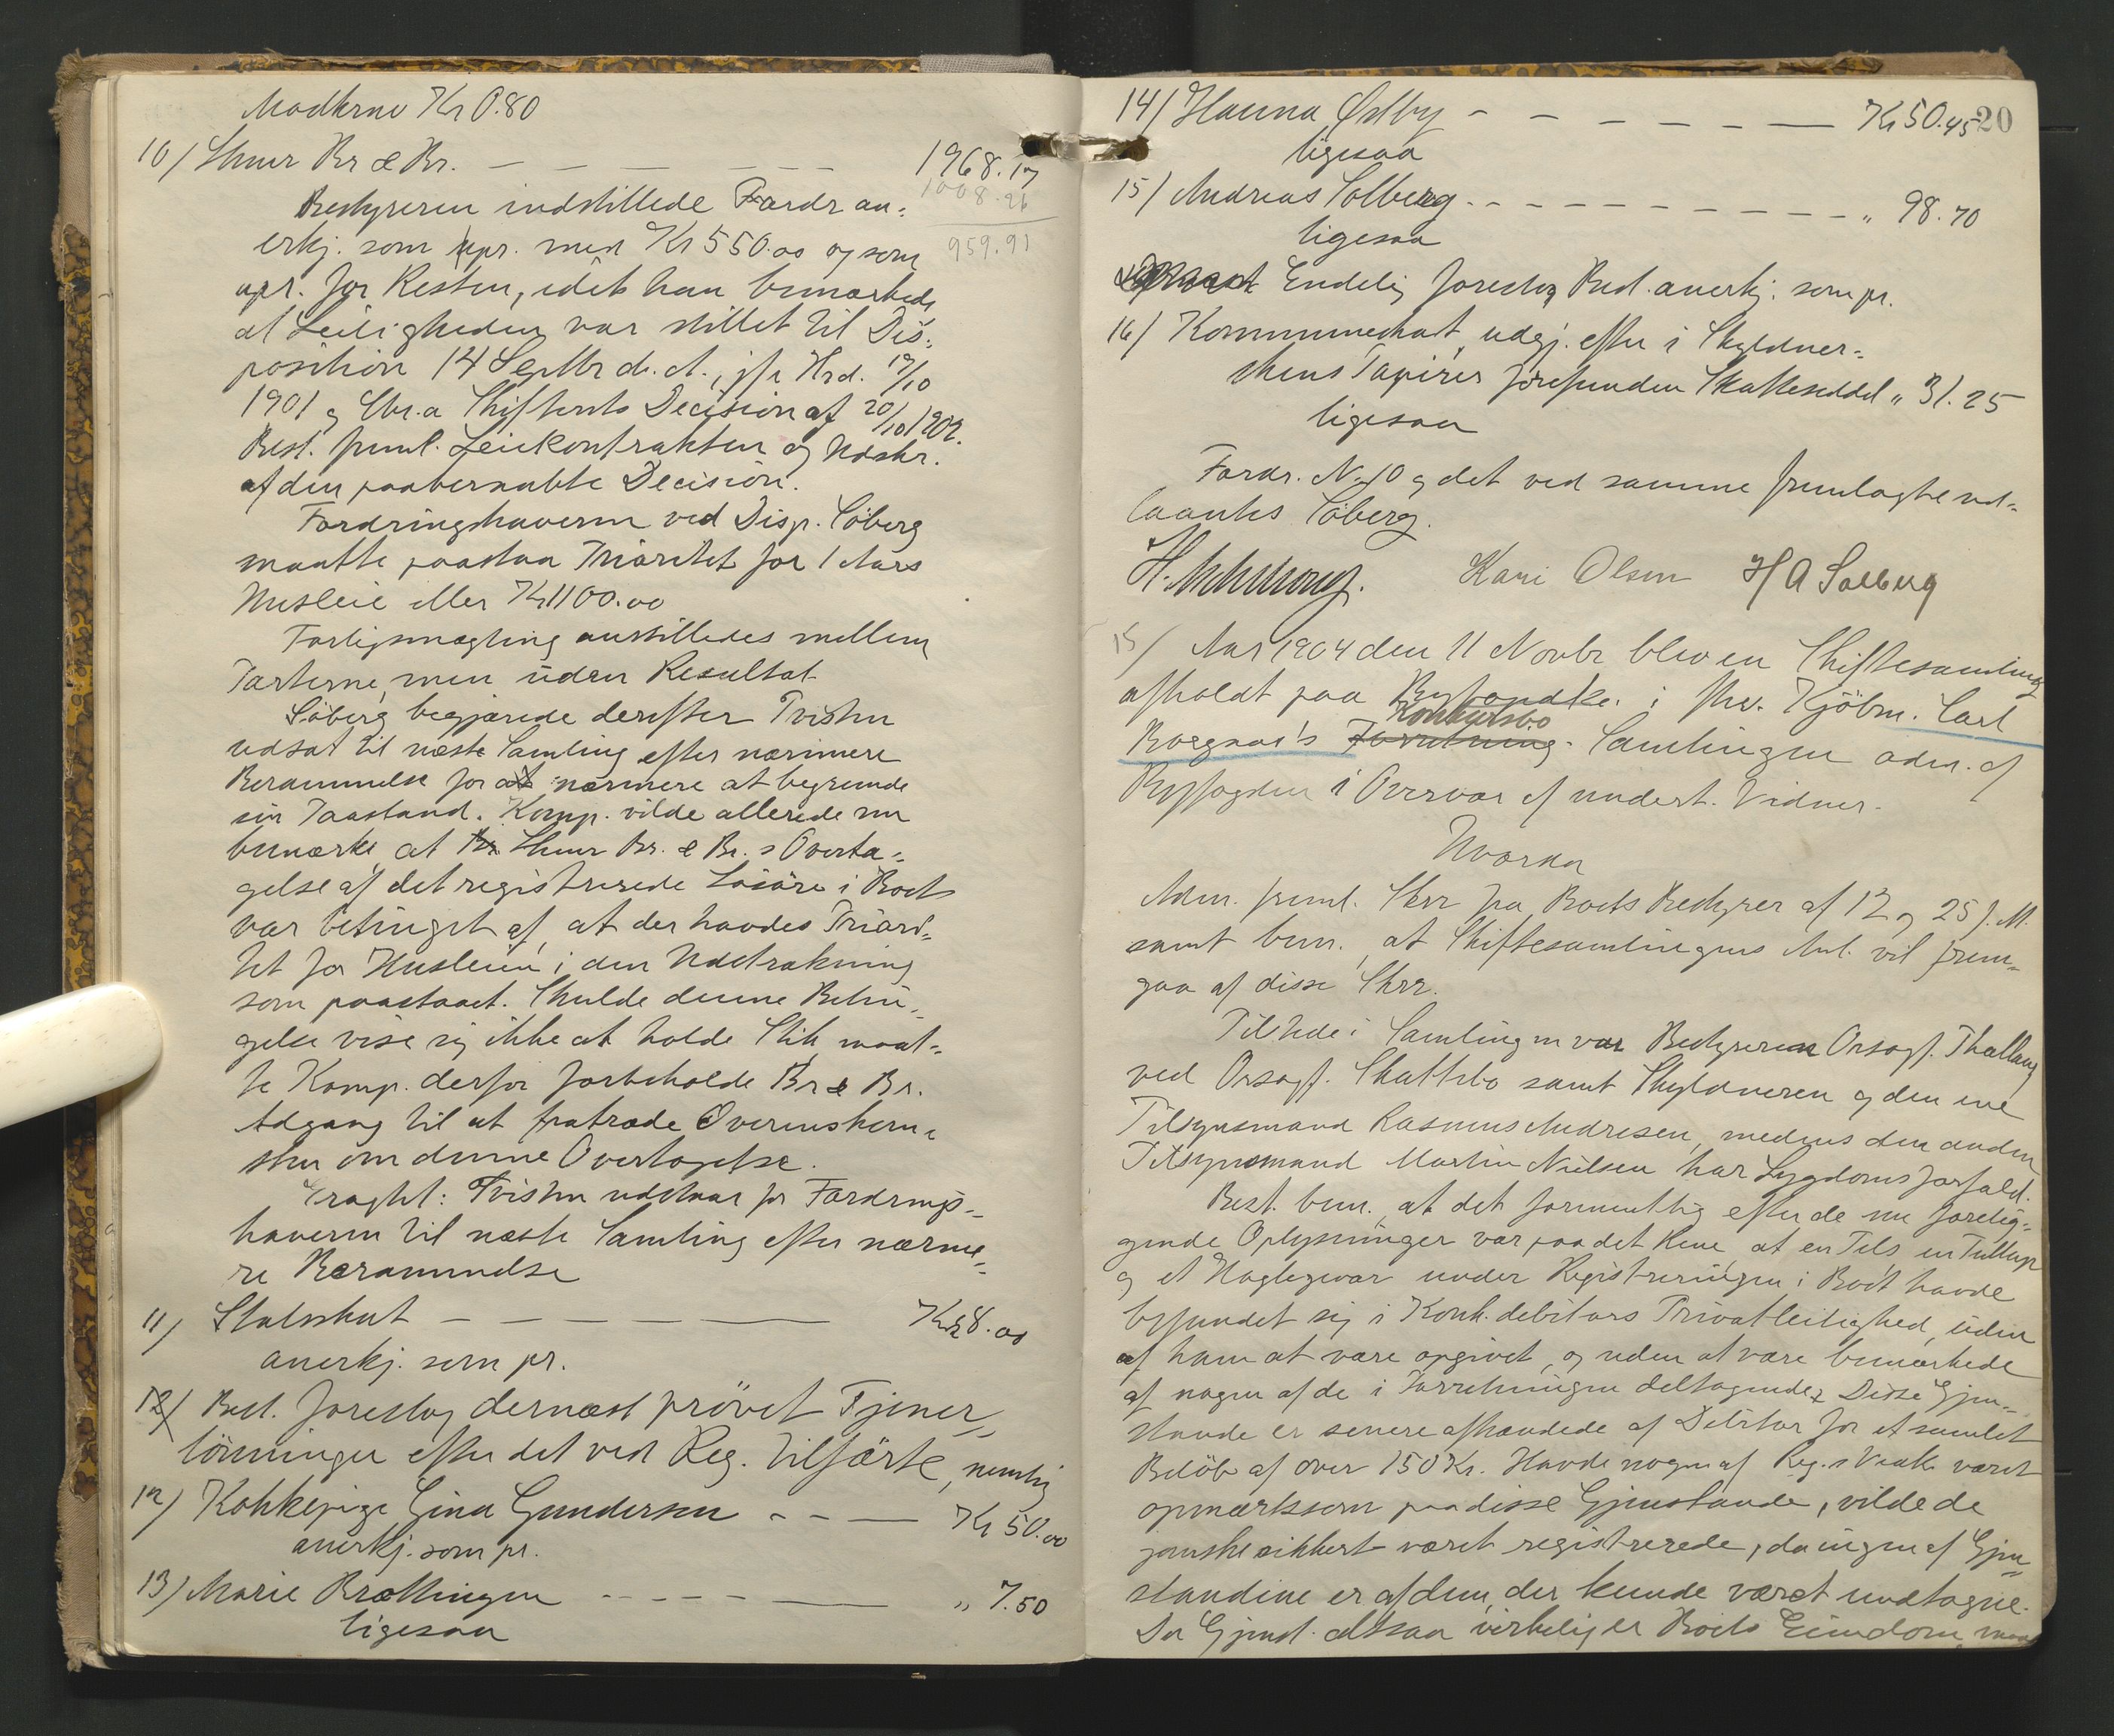 Kr 0.80
10) Br & Br. — — — — — 1968.17
1008.26
Bestyreren indstillede Fordr an-
959.91
erkj. som upr. med Kr 550.00 og som
upr. for Resten, idet han bemærkede
at Leiligheden var stillet til Dis-
position 14 Septbr d. A., jfr Hrd. 19/10
1901 og Chr.a Skifterets Decision af 20/10 1902.
Best. freml. Leiekontrakten og Udskr.
af den paaberaabte Decision.
Fordringshaveren ved Disp. Söberg
maatte paastaa Prioritet for 1 Aars
Husleie eller Kr 1100.00
Forligsmægling anstilledes mellem
Parterne, men uden Resultat
Söberg begjærede derefter Tvisten
udsat til næste Samling efter nærmere
Berammelse for at nærmere at begrunde
sin Paastand. Komp. vilde allerede nu
bemærke at Br. & Br.s Overta-
gelse af det registrerede Løsøre i Boet
var betinget af, at der havdes Priori-
tet for Husleien i den Udstrækning
som paastaaet. Skulde denne Betin-
gelse vise sig ikke at holde Stik, maat-
te Komp. derfor forbeholde Br & Br.
Adgang til at fratræde Overenskom-
sten om denne Overtagelse.
Eragtet: Tvisten udstaar for Fordrings-
haveren til næste Samling efter nærme-
re Berammelse
11) Statsskat — — — — — Kr 28.00
anerkj. som pr.
12) Best. foreslog dernæst prövet Tjener-
lönninger efter det ved Reg. tilförte, nemlig
12) Kokkepige Gina Gundersen - - — Kr 50.00
anerkj. som pr.
13) Marie Brættingen - - - - — „ 7.50
ligesaa
20
14) Hanna Østby - — — — — — Kr 50.45
ligesaa
15) Andreas Solberg - - - - - - - - - „ 98.70
ligesaa
Endelig foreslog Best. anerkj. som pr.
16) Kommuneskat, udgj. efter i Skyldner-
skens Papirer forefunden Skatteseddel „ 31.25
ligesaa
Fordr. No 10 og det ved samme fremlagte ud-
laantes Söberg.
Kari Olsen H A Solberg
15) Aar 1904 den 11 Novbr blev en Skiftesamling
afholdt paa Byfogdktr. i fhv. Kjöbm. Carl
Konkursbo
Borgnæs's Forretning. Samlingen adm. af
Byfogden i Overvær af undert. Vidner.
Hvorda
Adm. freml. Skr fra Boets Bestyrer af 12 og 25 f. M.
samt bem., at Skiftesamlingens Anl. vil frem-
gaa af disse Skrr.
Tilstede i Samlingen var Bestyreren Orsagf. Thallaug
ved Orsagf. Skattebo samt Skyldneren og den ene
Tilsynsmand Rasmus Andresen, medens den anden
Tilsynsmand Martin Nielsen har Sygdomsforfald.
Best. bem., at det formentlig efter de nu forelig-
gende Oplysninger var paa det Rene at en Pels, en Tullup
og et Haglgevær under Registreringen i Boet havde
befundet sig i Konk.debitors Privatleilighed, uden
af ham at være opgivet, og uden at være bemærkede
af nogen af de i Forretningen deltagende. Disse Gjen-
stande er senere afhændede af Debitor for et samlet
Belöb af over 150 Kr. Havde nogen af Reg.s været
opmærksom paa disse Gjenstande, vilde de
ganske sikkert været registrerede, da ingen af Gjen-
standene er af dem, der kunde været undtagne.
Da Gjenst. altsaa virkelig er Boets Eiendom, maa